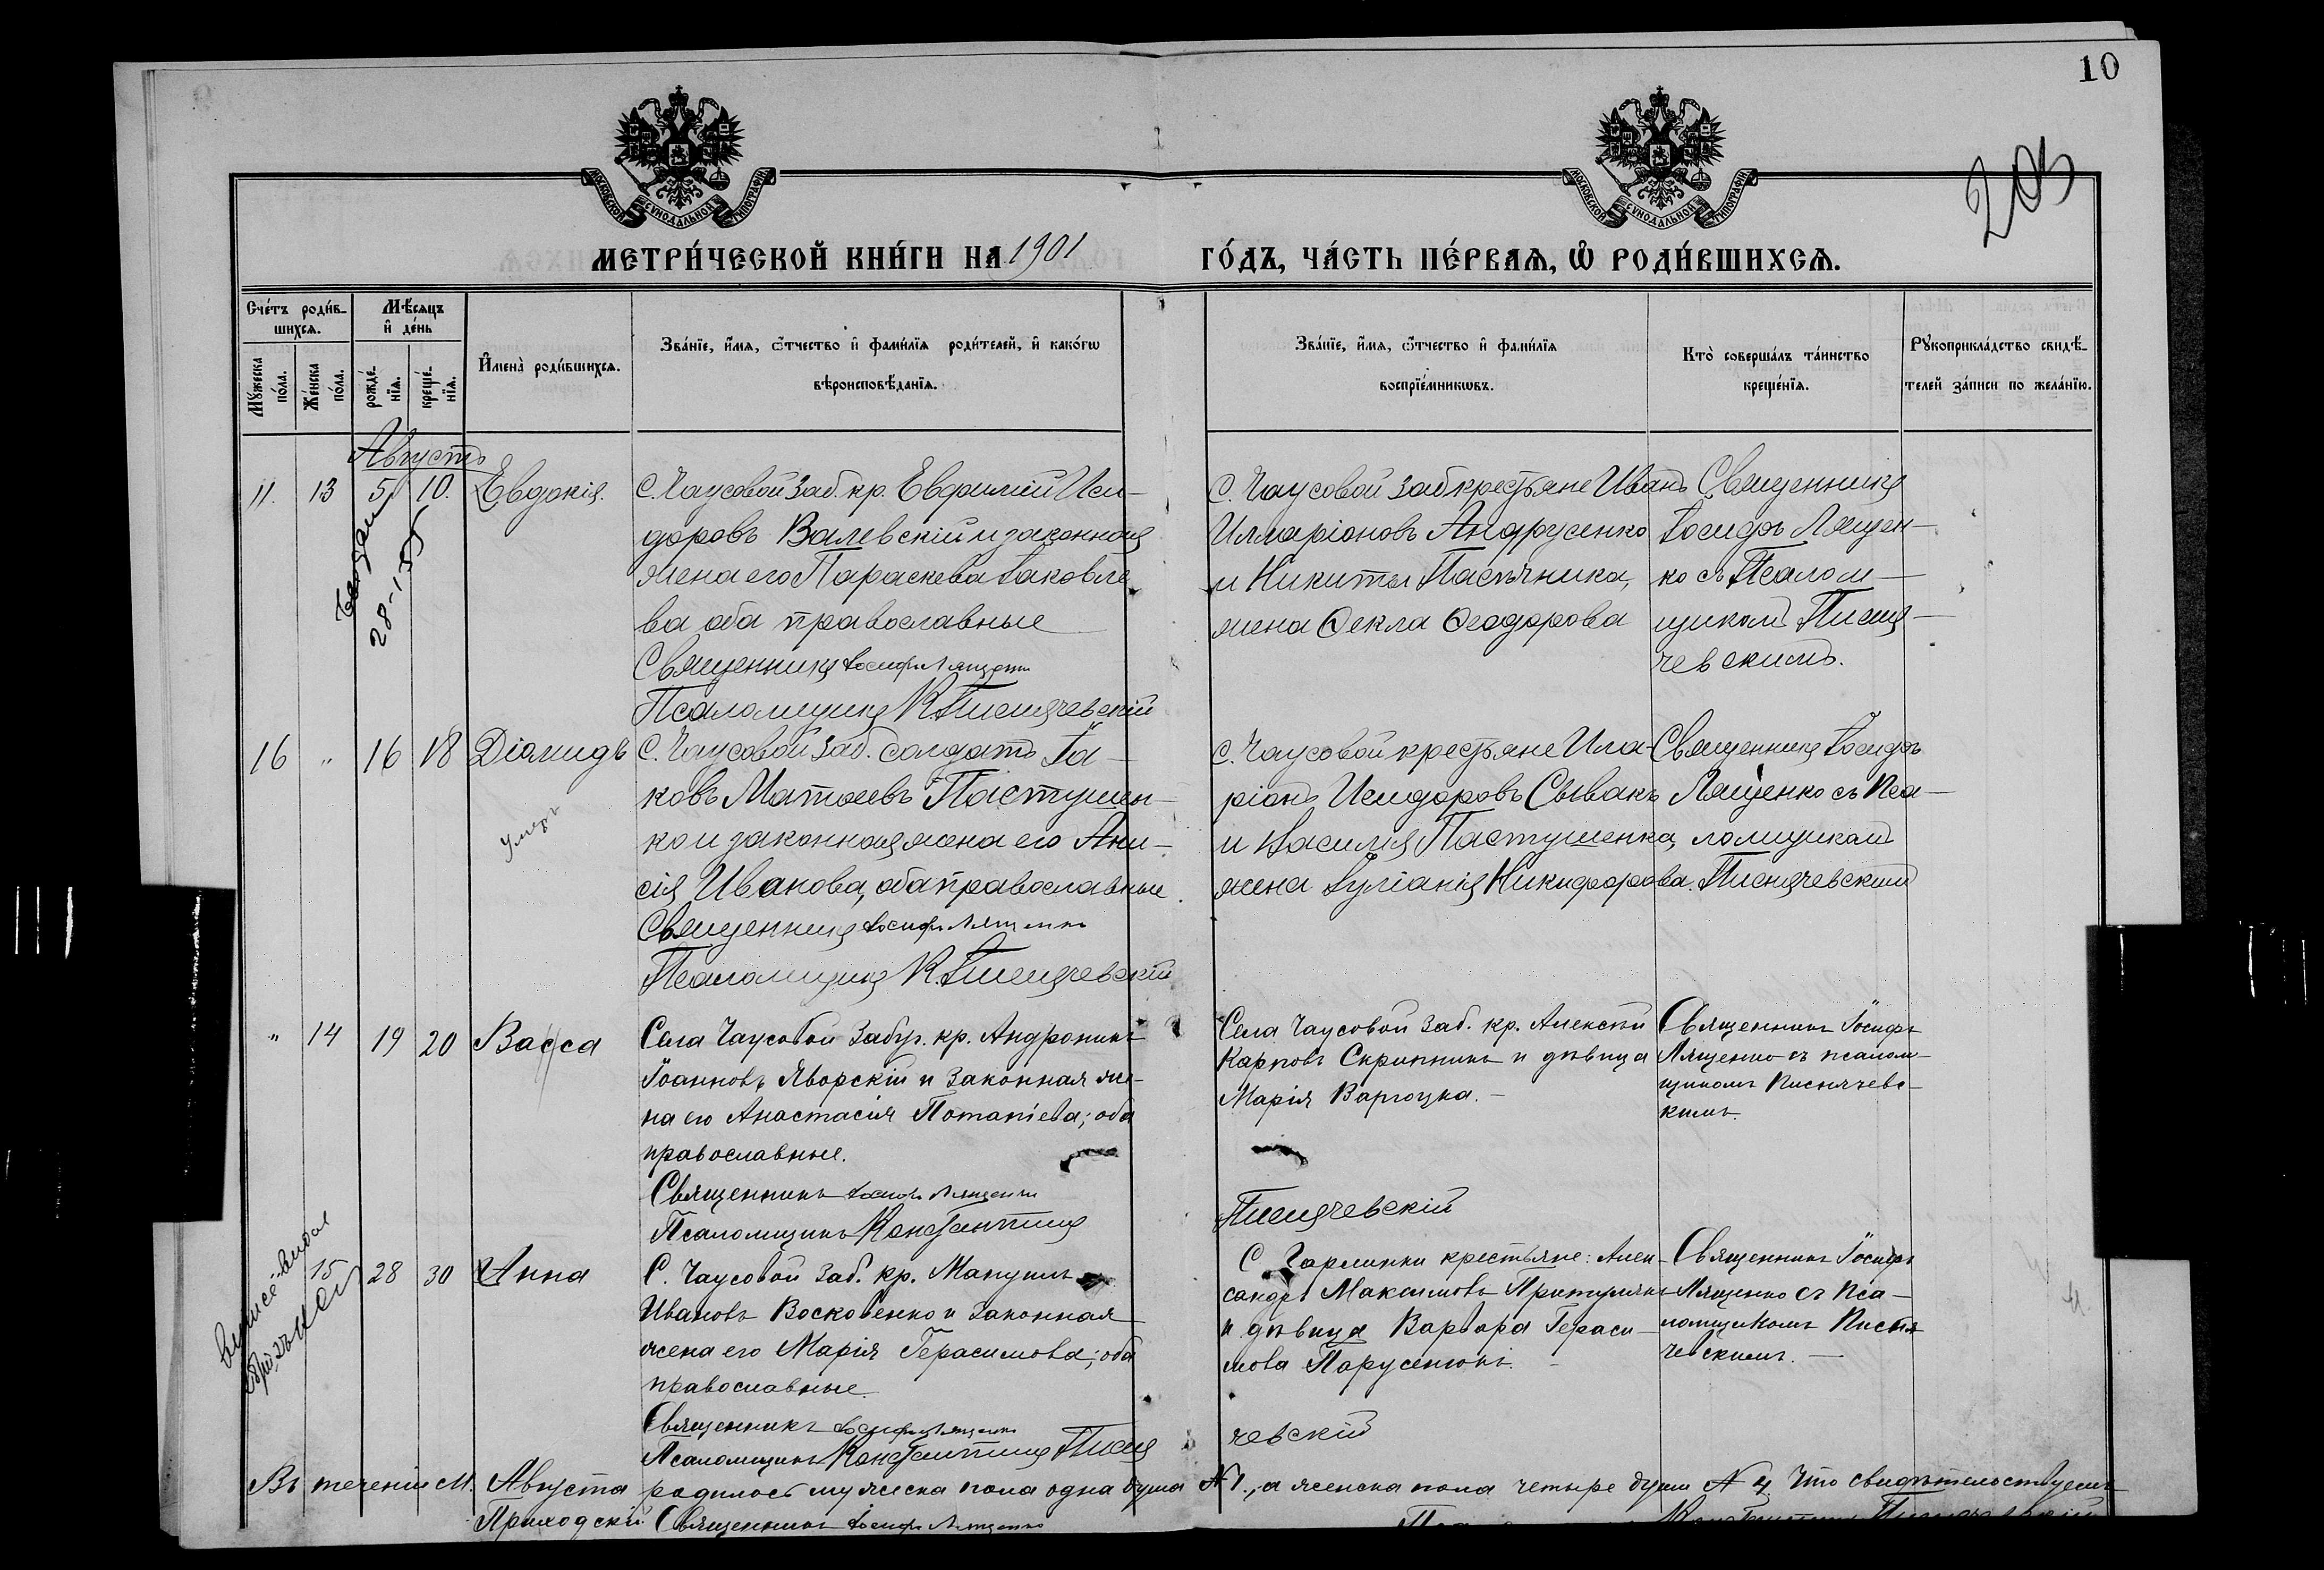 10
203
МОСКОВСКОЙ СУНОДАЛЬНОЙ ТИПОГРАФІИ
МОСКОВСКОЙ СУНОДАЛЬНОЙ ТИПОГРАФІИ
МЕТРИ́ЧЕСКОЙ КНИ́ГИ НА 1901 ГО́ДЪ, ЧА́СТЬ ПЕ́РВАѦ, Ѡ РОДИ́ВШИХСѦ.
Сче́тъ роди́в-
шихсѧ.
Мꙋжеска по́ла.
Же́нска по́ла.
Мѣ́сѧцъ
и де́нь
рожде́-
нїѧ.
креще́-
нїѧ.
Имена̀ роди́вшихсѧ.
Зва́нїе, и́мѧ, ѻ́тчество и фами́лїѧ роди́телей, и како́гѡ
вѣроисповѣ́данїѧ.
Зва́нїе, и́мѧ, ѻ́тчество и фами́лїѧ
воспрїе́мникѡвъ.
Кто̀ соверша́лъ та́инство
креще́нїѧ.
Рꙋкоприкла́дство свидѣ́-
телей за́писи по жела́нїю.
Августъ
11. 13 5 10. Евдокія.
28-135
С. Чаусовой Заб. кр. Евфимій Иси-
доровъ Валевскій и законная
жена его Параскева Іаковле
ва оба православные
Священникъ Іосифъ Лященко
Псаломщикъ К. Писнячевскій
С. Чаусовой Заб крестьяне Иванъ
Илларіоновъ Андрусенко
и Никиты Пасѣчника,
жена Ѳекла Ѳеодорова
Священникъ
Іосифъ Лящен-
ко съ Псалом-
щикомъ Писня-
чевскимъ.
16 " 16 18 Діамидъ
Умеръ
С. Чаусовой Заб. солдатъ Іа-
ковъ Матѳеевъ Пастушен-
ко и законная жена его Ани-
сія Иванова, оба православные
Священникъ Іосифъ Лященко
Псаломщикъ К. Писнячевскій
С. Чаусовой крестьяне Ила-
ріонъ Исидоровъ Сывакъ
и Василія Пастушенка,
жена Іуліанія Никифорова.
Священникъ Іосифъ
Лященко съ Пса-
ломщикомъ
Писнячевскимъ
" 14 19 20 Васса
Села Чаусовой Забуг. кр. Андроникъ
Іоанновъ Яворскій и законная же-
на его Анастасія Потапіева; оба
православные.
Священникъ Іосифъ Лященко
Псаломщикъ Константинъ Писнячевскій
Села Чаусовой Заб. кр. Алексѣй
Карповъ Скрипникъ и дѣвица
Марія
Священникъ Іосифъ
Лященко съ псалом-
щикомъ Писнячевс-
кимъ.
15 28 30 Анна
С. Чаусовой Заб. кр. Мануилъ
Ивановъ Восковенко и законная
жена его Марія Герасимова; оба
православные.
Священникъ Іосифъ Лященко
Псаломщикъ Константинъ Писнячевскій
С крестьяне: Алек-
сандръ Максимовъ
и дѣвица Варвара Гераси-
мова
Священникъ Іосифъ
Лященко съ Пса-
ломщикомъ Писня
чевскимъ.
Въ теченіи М. Августа родилось мужеска пола одна душа № 1, а женска пола четыре души № 4 Что свидѣтельствуемъ
Приходскій Священникъ Іосифъ Лященко